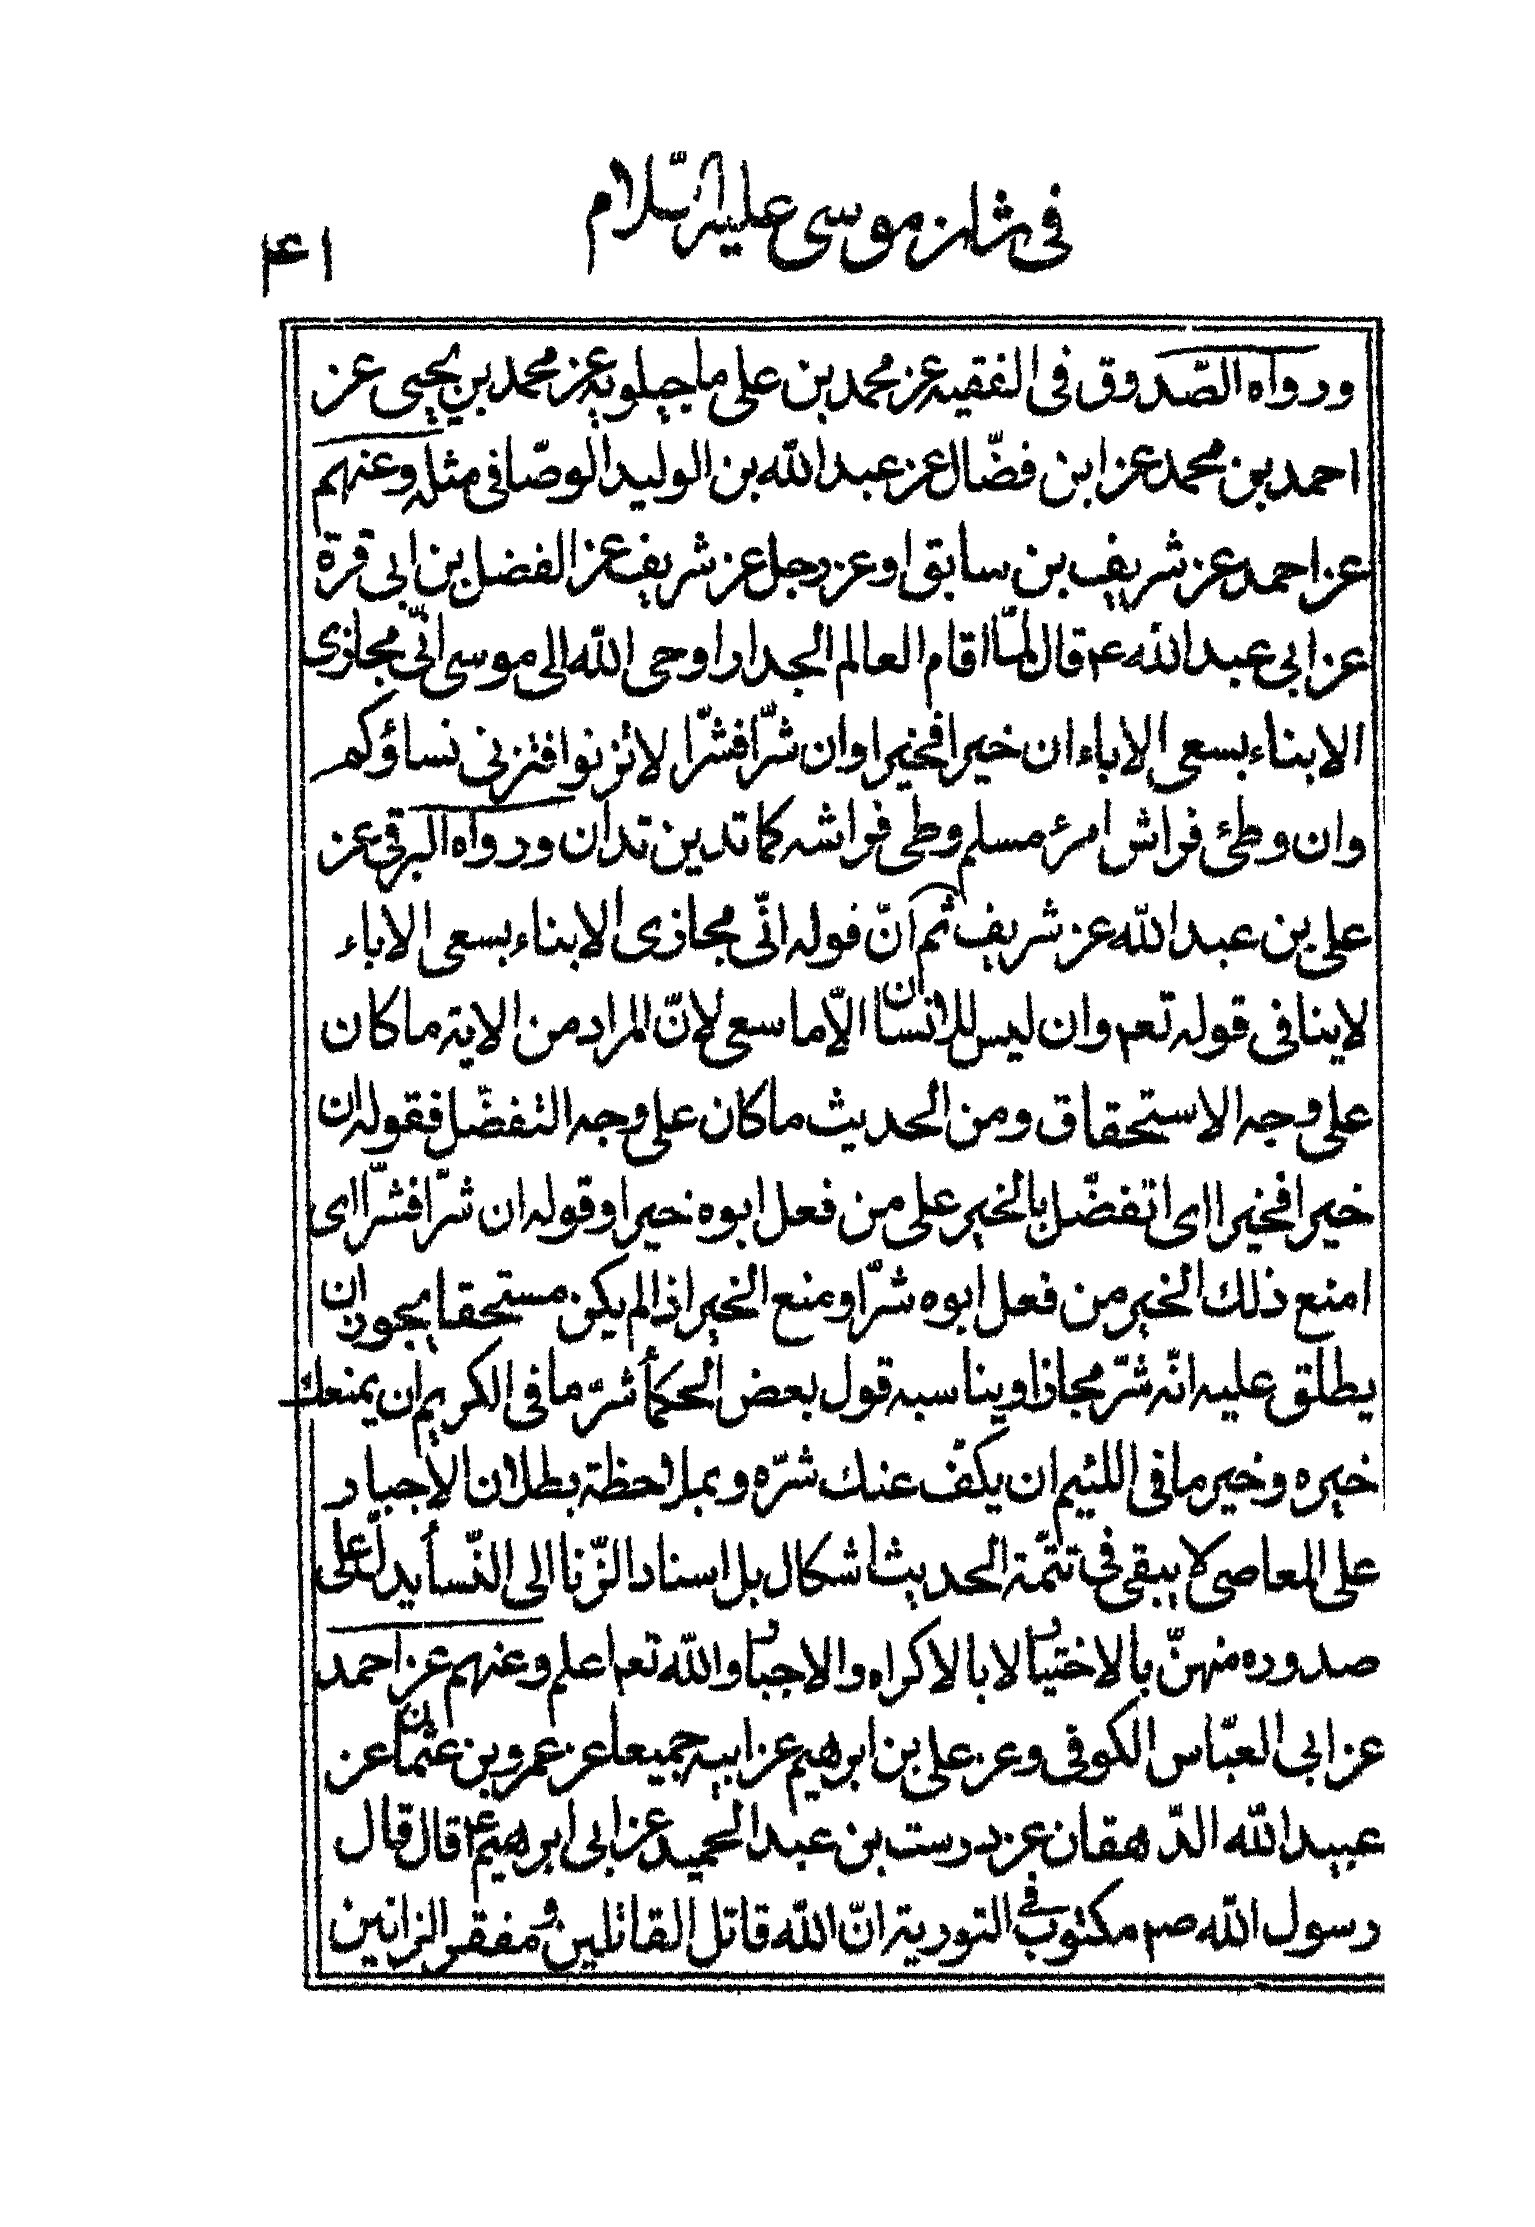 في شان موسى عليه السّلام
۴۱
ورواه الصّدوق في الفقيه عن محمد بن علي ماجيلويه عن محمد بن يحيى عن
احمد بن محمد عن ابن فضّال عن عبد الله بن الوليد الوصّافي مثله وعنهم
عن احمد عن شريف بن سابق او عن رجل عن شريف عن الفضل بن ابي قرة
عن ابي عبد الله ع قال لمّا اقام العالم الجدار اوحى الله الى موسى انّي مجازى
الابناء بسعى الاباء ان خيرا فخيرا وان شرّا فشرّا لا تزنوا فتزني نساؤكم
وان وطئ فراش امرئ مسلم وطى فراشه كما تدين تدان ورواه البرقي عن
علي بن عبد الله عن شريف ثم انّ قوله انّي مجازى الابناء بسعى الاباء
لا ينافي قوله تعم وان ليس للانسان الاّ ما سعى لانّ المراد من الاية ما كان
على وجه الاستحقاق ومن الحديث ما كان على وجه التفضّل فقوله ان
خيرا فخيرا اى اتفضّل بالخير على من فعل ابوه خيرا وقوله ان شرّا فشرّا اى
امنع ذلك الخير من فعل ابوه شرّا ومنع الخير اذا لم يكن مستحقا يجوز ان
يطلق عليه انّه شرّ مجازا ويناسبه قول بعض الحكمأ شرّ ما في الكريم ان يمنعك
خيره وخير ما في اللئيم ان يكفّ عنك شرّه وبملاحظة بطلان الاجبار
على المعاصى لا يبقى في تتمّة الحديث اشكال بل اسناد الزّنا الى النّسأ يدلّ على
صدوره منهنّ بالاختيار لا بالاكراه والاجبار والله تعم اعلم وعنهم عن احمد
عن ابي العبّاس الكوفي وعن علي بن ابرهيم عن ابيه جميعا عن عمرو بن عثمان عن
عبيد الله الدّهقان عن درست بن عبد الحميد عن ابي ابرهيم ع قال قال
رسول الله صم مكتوب في التورية انّ الله قاتل القاتلين ومفقر الزانين